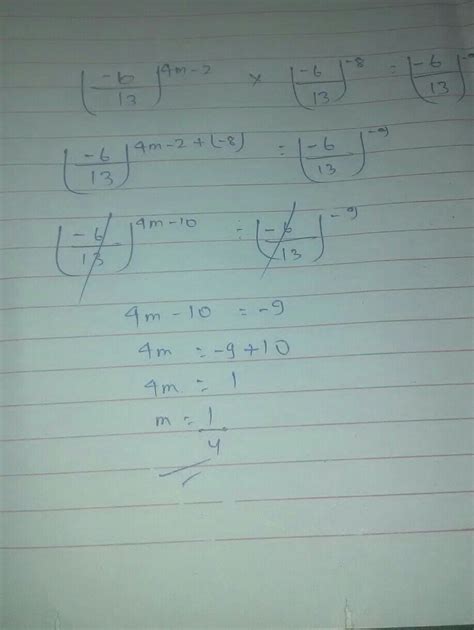 (-6/13)^4m-2 × (-6/13)^-8 = (-6/13)^-
(-6/13)^4m-2+(-8) = (-6/13)^-9
(-6/13)^4m-10 = (-6/13)^-9
4m-10 = -9
4m = -9+10
4m = 1
m = 1/4